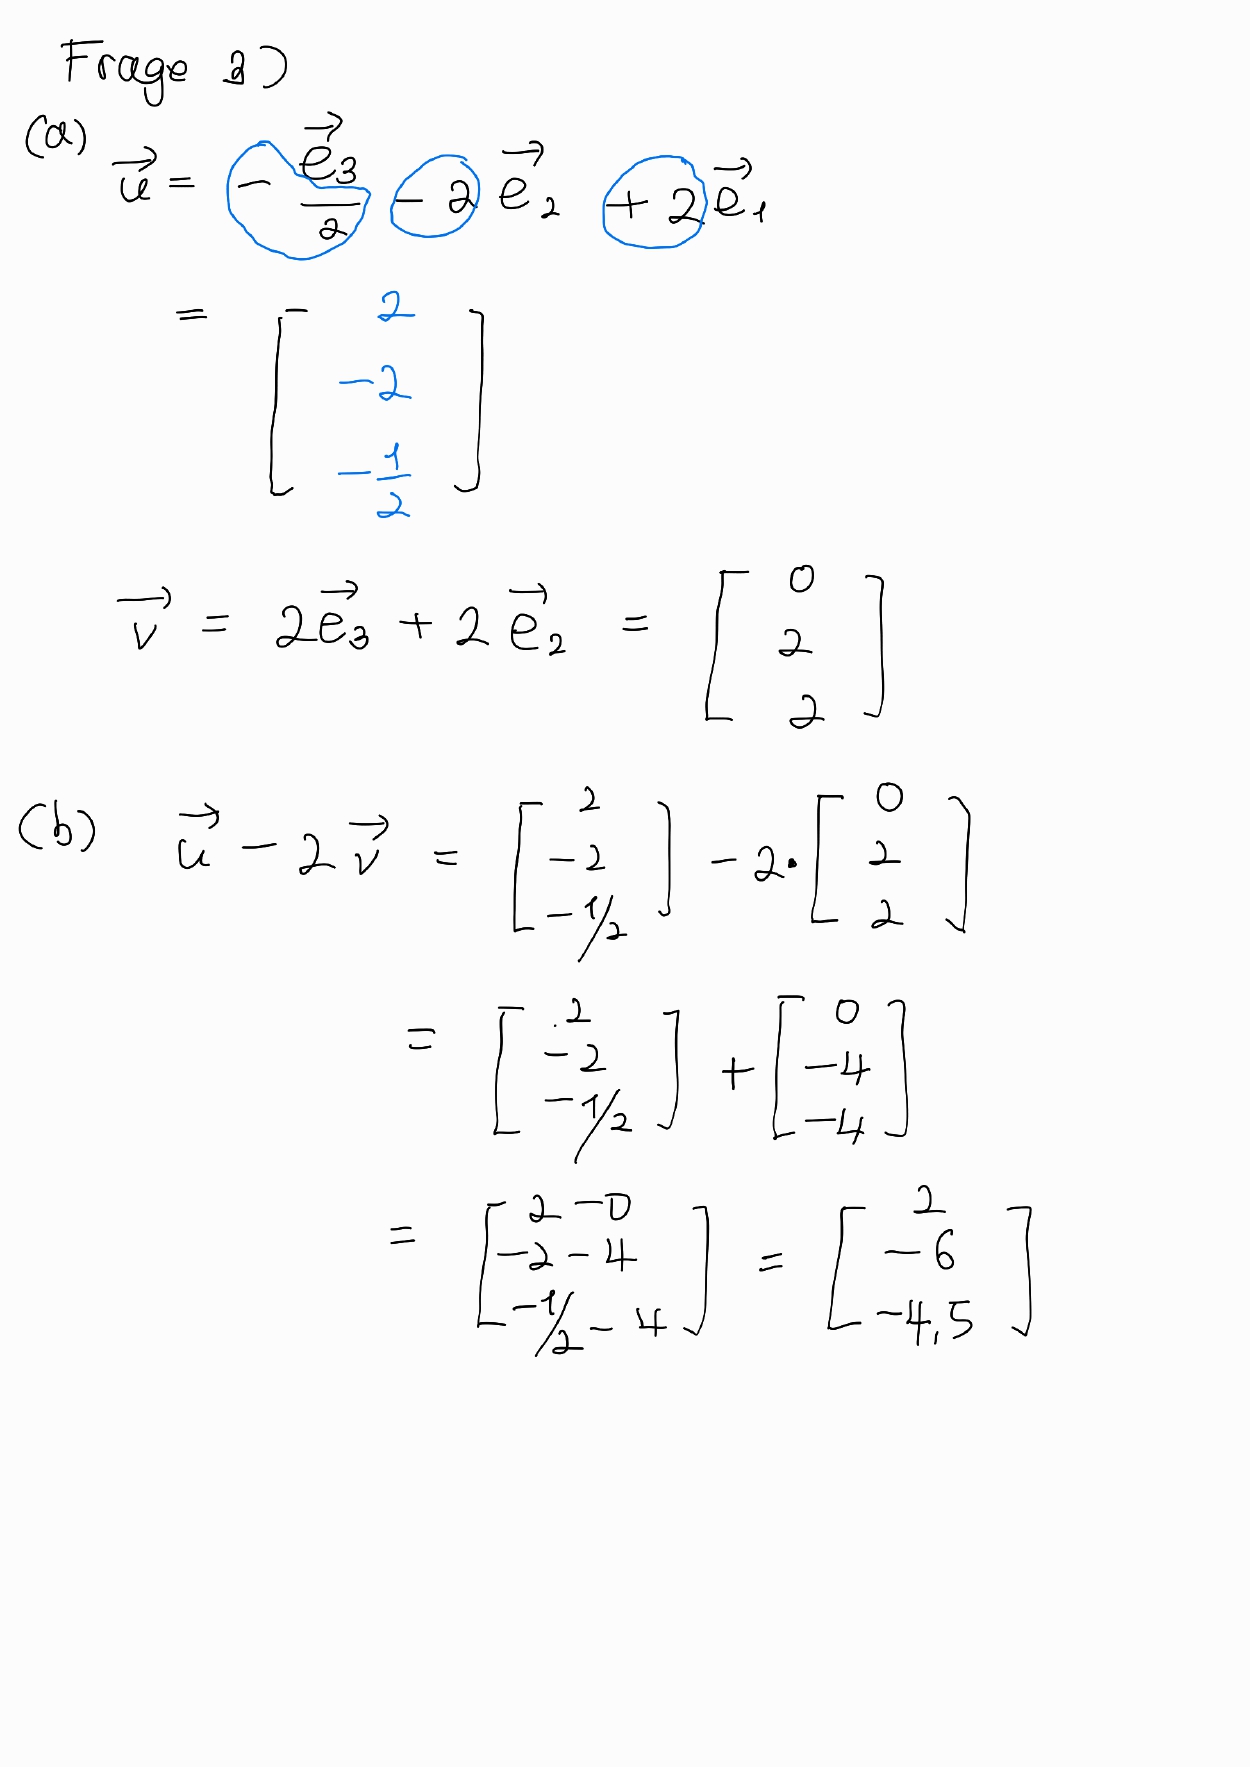 Frage 3)
(a) \vec{u} = - \frac{\vec{e}_3}{2} - 2 \vec{e}_2 + 2 \vec{e}_1
= [ 2 ; -2 ; -\frac{1}{2} ]
\vec{v} = 2\vec{e}_3 + 2\vec{e}_2 = [ 0 ; 2 ; 2 ]
(b) \vec{u} - 2\vec{v} = [ 2 ; -2 ; -1/2 ] - 2 · [ 0 ; 2 ; 2 ]
= [ 2 ; -2 ; -1/2 ] + [ 0 ; -4 ; -4 ]
= [ 2 - 0 ; -2 - 4 ; -1/2 - 4 ] = [ 2 ; -6 ; -4,5 ]